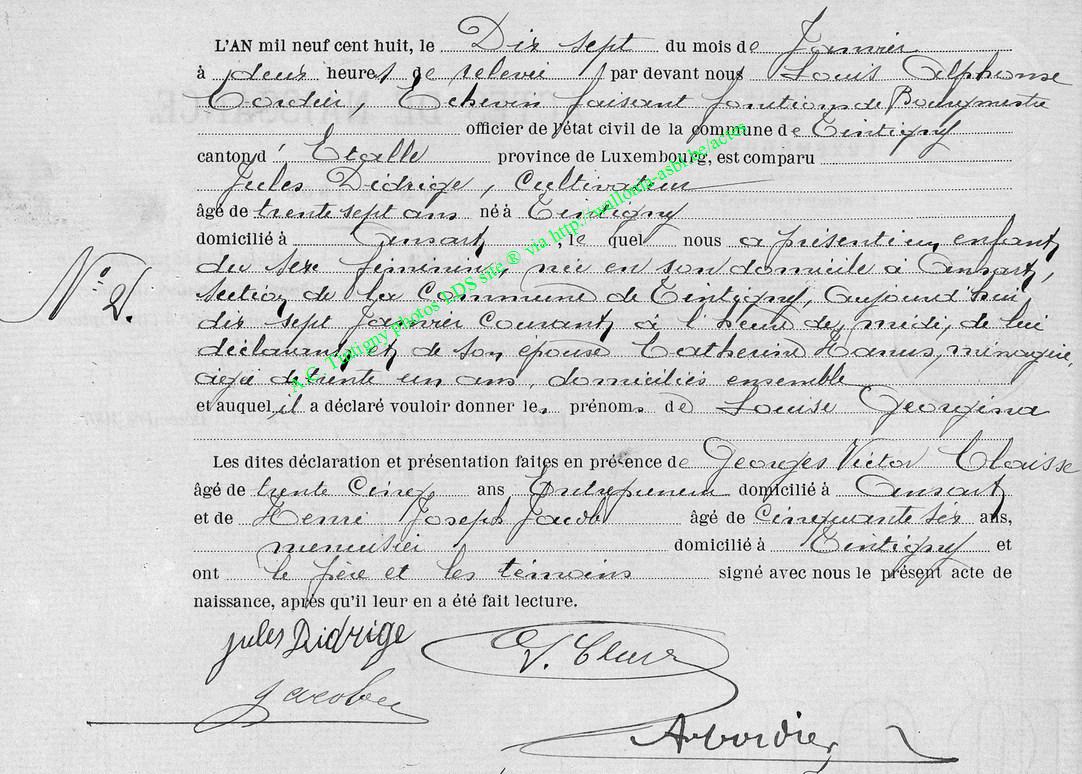 L'AN mil neuf cent huit, le Dix sept du mois de Janvier
à deux heures de relevée par devant nous Louis Alphonse
Cordier, Echevin faisant fonctions de Bourgmestre
officier de l'état civil de la commune de Tintigny
canton d' Etalle province de Luxembourg, est comparu
Jules Didrige, Cultivateur
âgé de trente sept ans né à Tintigny
domicilié à Ansart, le quel nous a présenté un enfant
du sexe féminin, née en son domicile à Ansart,
section de la Commune de Tintigny, aujourd'hui
dix sept Janvier courant à l'heure de midi, de lui
déclarant et de son épouse Catherine Hanus, ménagère,
âgée de trente un ans, domiciliés ensemble
et auquel il a déclaré vouloir donner les prénoms de Louise Georgina
Les dites déclaration et présentation faites en présence de Georges Victor Claisse
âgé de trente cinq ans Entrepreneur domicilié à Ansart
et de Henri Joseph Jacob âgé de Cinquante six ans,
menuisier domicilié à Tintigny et
ont le père et les témoins signé avec nous le présent acte de
naissance, après qu'il leur en a été fait lecture.
N° 2.
A.C. Tintigny photos LDS site ® via http://wallonia-asbl.be/actes
Jules Didrige
V. Claisse
Jacob
A. Cordier